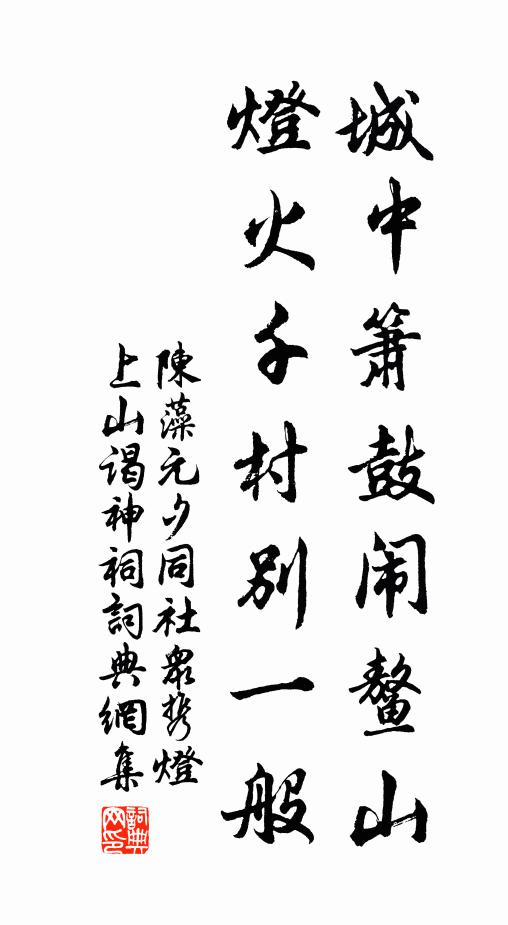 城中簫鼓闹鰲山
燈火千村别一般
陳藻元夕同社衆携燈
上山谒神祠詞典網集
詞典网印